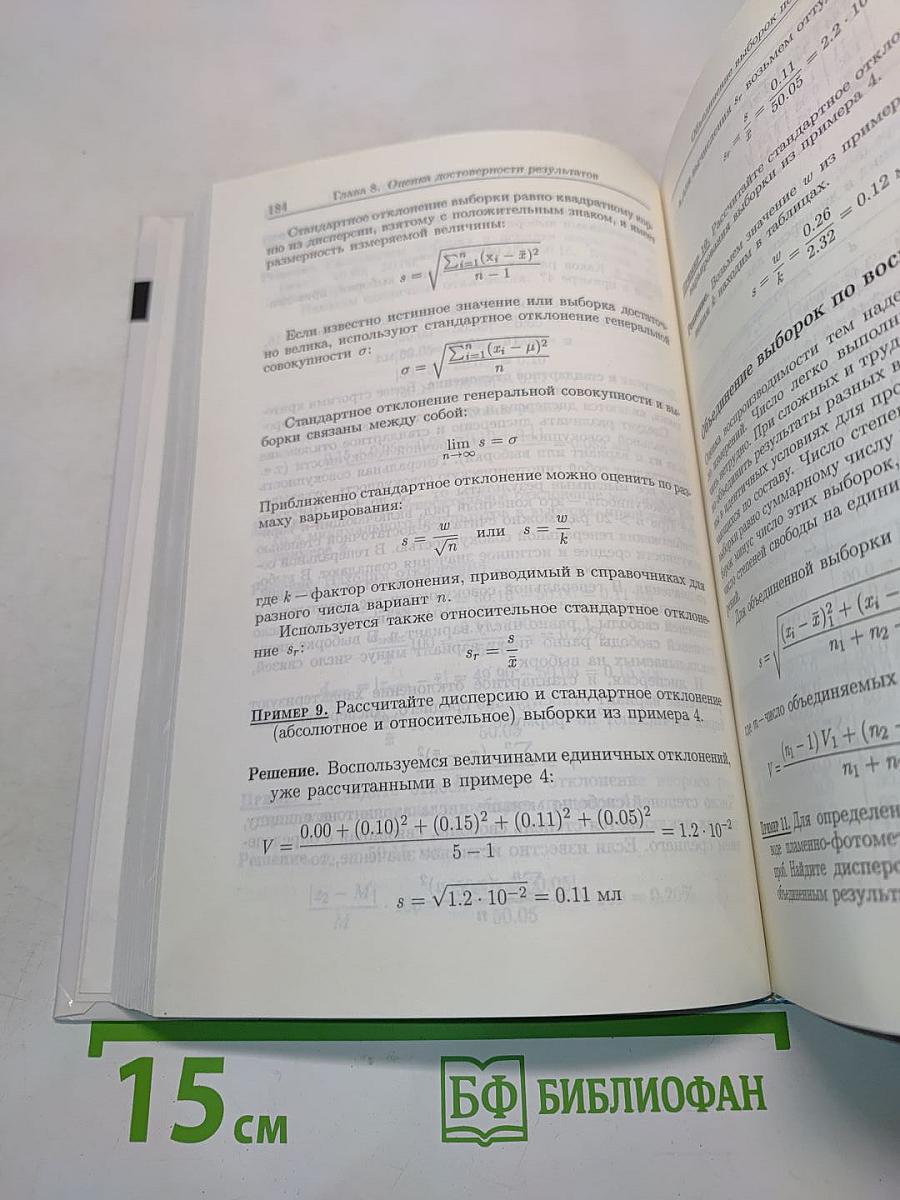 184
Глава 8. Оценка достоверности результатов
Стандартное отклонение выборки равно квадратному кор-
ню из дисперсии, взятому с положительным знаком, и имеет
размерность измеряемой величины:
s = √(∑ⁿᵢ₌₁(xᵢ − x̄)² / n − 1)
Если известно истинное значение или выборка достаточ-
но велика, используют стандартное отклонение генеральной
совокупности σ:
σ = √(∑ⁿᵢ₌₁(xᵢ − μ)² / n)
Стандартное отклонение генеральной совокупности и вы-
борки связаны между собой:
lim s = σ
n→∞
Приближенно стандартное отклонение можно оценить по раз-
маху варьирования:
s = w/√n или s = w/k
где k — фактор отклонения, приводимый в справочниках для
разного числа вариант n.
Используется также относительное стандартное отклоне-
ние sᵣ:
sᵣ = s/x̄
Пример 9. Рассчитайте дисперсию и стандартное отклонение
(абсолютное и относительное) выборки из примера 4.
Решение. Воспользуемся величинами единичных отклонений,
уже рассчитанными в примере 4:
V = 0.00 + (0.10)² + (0.15)² + (0.11)² + (0.05)² / 5 − 1 = 1.2 · 10⁻²
s = √1.2 · 10⁻² = 0.11 мл
Объединение выборок по
sᵣ возьмем
sᵣ = s/x̄ = 0.11/50.05 = 2.2 · 10
Рассчитайте стандартное откло
выборки из примера 4.
Решение. Возьмем значение w из пример
k находим в таблицах.
s = w/k = 0.26/2.32 = 0.12 м
Объединение выборок по вос
воспроизводимости тем наде
измерений. Число легко выполни
нетрудно. При сложных и труд
объединить результаты разных в
идентичных условиях для про
по составу. Число степе
выборки равно суммарному числу
минус число этих выборок,
число степеней свободы на едини
Для объединенной выборки
s = √((xᵢ − x̄)²₁ + (xᵢ − / n₁ + n₂ −
где m — число объединяемых
V = (n₁ − 1)V₁ + (n₂ − / n₁ + n
Пример 11. Для определен
воде пламенно-фотоме
проб. Найдите дисперс
объединенным результ
15 см
БФ БИБЛИОФАН